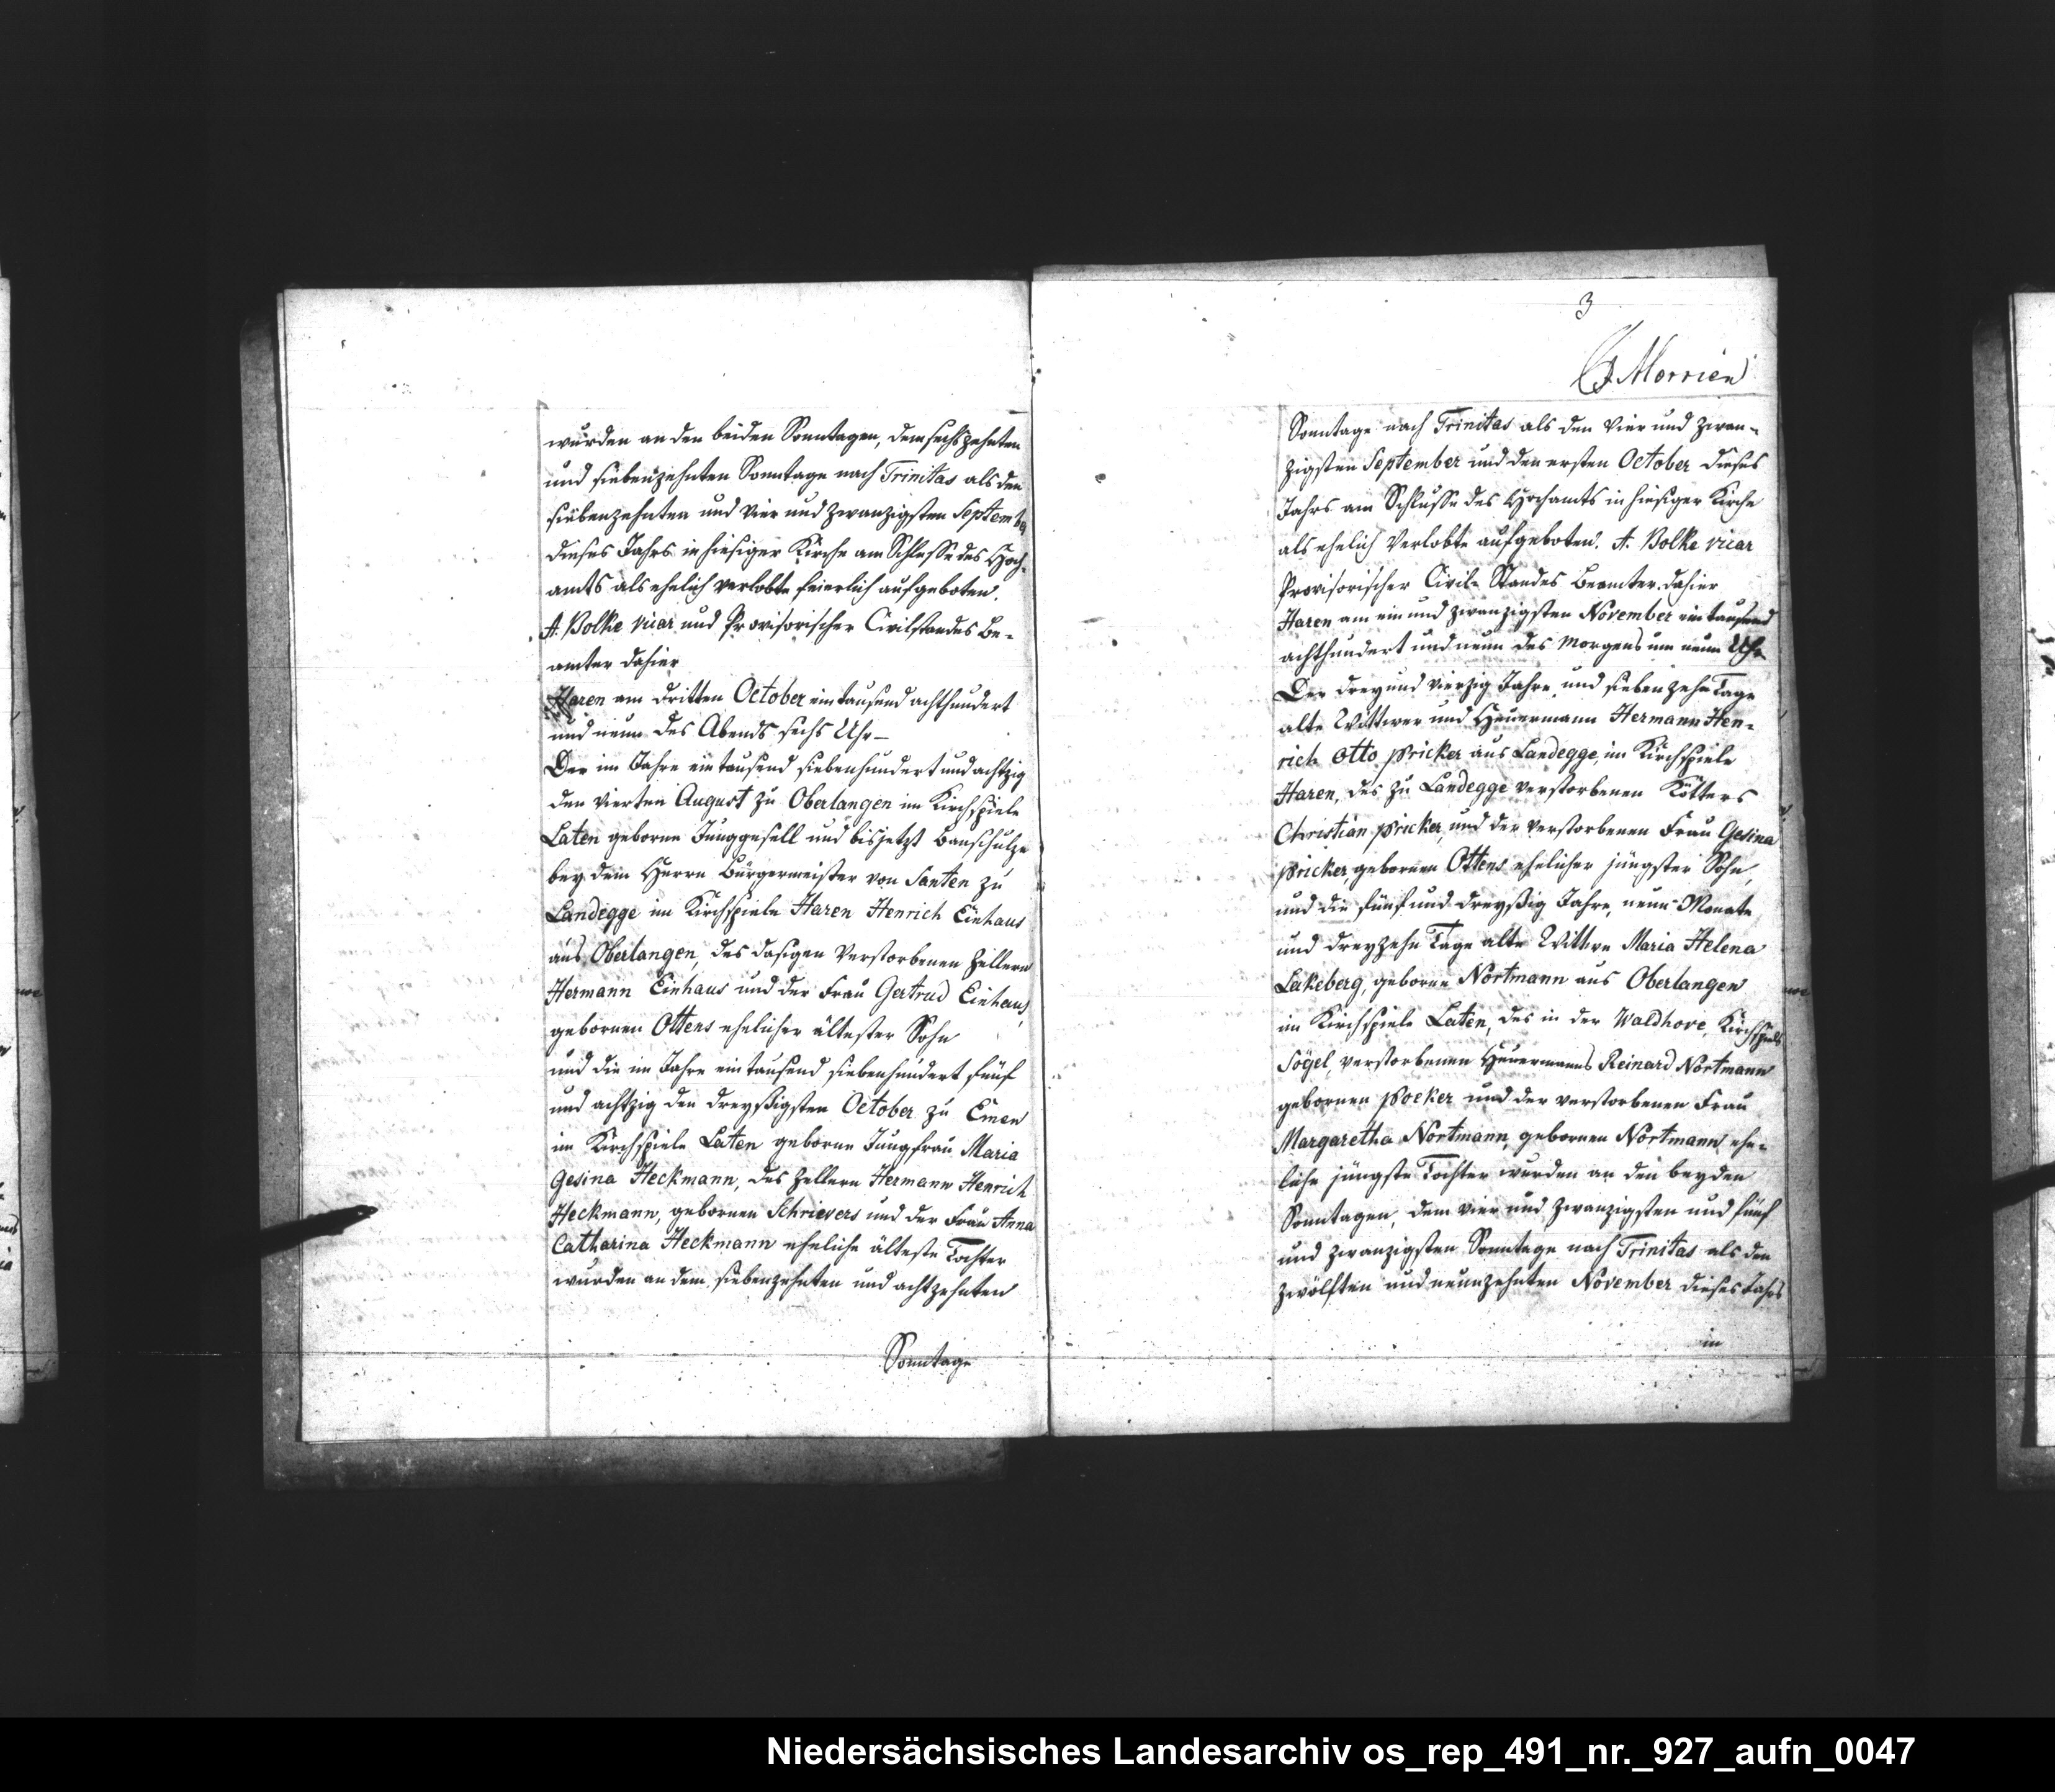 wurden an den beiden Sonntagen, dem sechszehnten
und siebenzehnten Sonntage nach Trinitas als den
siebenzehnten und vier und zwanzigsten September
dieses Jahrs in hiesiger Kirche am Schlusse des Hoch-
amts als ehelich verlobte feierlich aufgeboten.
A. Bolke vicar und Provisorischer Civilstandes Be-
amter dahier
Haren am dritten October eintausend achthundert
und neun des Abends sechs Uhr –
Der im Jahre eintausend siebenhundert und achtzig
den vierten August zu Oberlangen im Kirchspiele
Laten geborne Junggesell und bisjetzt Bauschulze
bey dem Herrn Bürgermeister von Santen zu
Landegge im Kirchspiele Haren Henrich Einhaus
aus Oberlangen, des dasigen verstorbenen Zellern
Hermann Einhaus und der Frau Gertrud Einhaus,
gebornen Ottens ehelicher ältester Sohn
und die im Jahre eintausend siebenhundert fünf
und achtzig den dreyßigsten October zu Emen
im Kirchspiele Laten geborne Jungfrau Maria
Gesina Heckmann, des Zellern Hermann Henrich
Heckmann, gebornen Schrievers und der Frau Anna
Catharina Heckmann eheliche älteste Tochter
wurden an dem siebenzehnten und achtzehnten
Sonntage
3
Morrien
Sonntage nach Trinitas als den vier und zwan-
zigsten September und den ersten October dieses
Jahrs am Schlusse des Hochamts in hiesiger Kirche
als ehelich Verlobte aufgeboten. A. Bolke vicar
Provisorischer Civil- Standes Beamter dahier
Haren am ein und zwanzigsten November eintausend
achthundert und neun des Morgens um neun Uhr
Der drey und vierzig Jahre und sieben zehn Tage
alte Wittwer und Heuermann Hermann Hen-
rich Otto Pricker aus Landegge im Kirchspiele
Haren, des zu Landegge verstorbenen Kötters
Christian Pricker, und der verstorbenen Frau Gesina
Pricker, gebornen Ottens ehelicher jüngster Sohn,
und die fünf und dreyßig Jahre, neun Monate
und dreyzehn Tage alte Wittwe Maria Helena
Lakeberg, geborne Nortmann aus Oberlangen
im Kirchspiele Laten, des in der Waldhove, Kirchspiels
Sögel, verstorbenen Heuermanns Reinard Nortmann
gebornen Pocker und der verstorbenen Frau
Margaretha Nortmann, gebornen Nortmann ehe-
liche jüngste Tochter wurden an den beyden
Sonntagen, dem vier und zwanzigsten und fünf
und zwanzigsten Sonntage nach Trinitas als den
zwölften und neunzehnten November dieses Jahrs
in
Niedersächsisches Landesarchiv os_rep_491_nr._927_aufn_0047